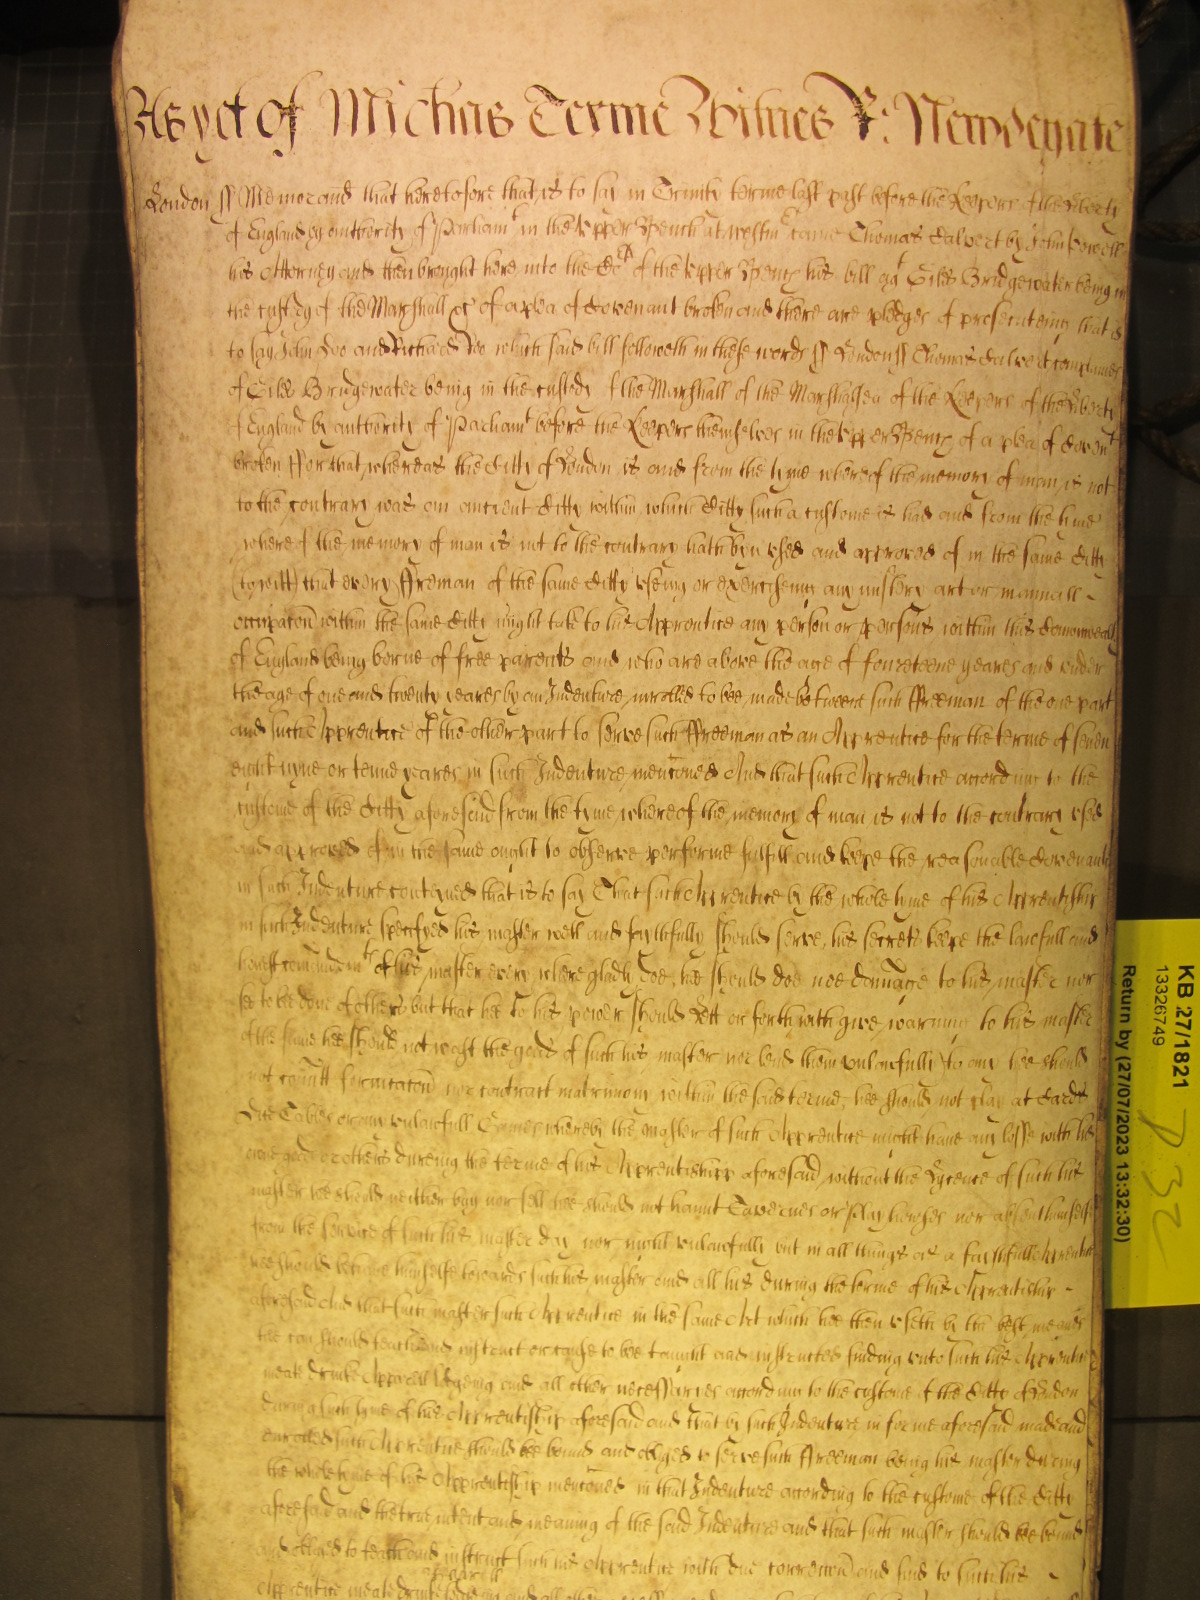 As yet of Michas Terme Witnes R: Newdegate
London ss Memorand that heretofore that is to say in Trinity terme last past before the Keepers of the liberty
of England by authority of Parliamt in the Upper Bench at Westmr came Thomas Calvert by John Cowell
his Attorney and then brought here into the Co of the Upper Bench his bill agt Giles Bridgewater being in
the custody of the Marshall &c of a plea of Covenant broken and there are pledges of prosecuteing that is
to say John Doo and Richard Roo which said bill followeth in these words ss London ss Thomas Calvert complaines
of Giles Bridgewater being in the custody of the Marshall of the Marshalsea of the Keepers of the liberty
of England by authority of Parliamt before the Keepers themselves in the Upper Bench of a plea of Covent
broken For that whereas the Citty of London is and from the tyme whereof the memory of man is not
to the contrary was an ancient Citty within which Citty such a custome is had and from the tyme
whereof the memory of man is not to the contrary hath byn used and approved of in the same Citty
(to witt) that every ffreeman of the same Citty useing or exerciseing any mistery art or manuall
occupacon within the same Citty might take to his Apprentice any person or persons within this Comonwealth
of England being borne of free parents and who are above the age of fourteene yeares and under
the age of one and twenty yeares by an Indenture inrolled to bee made betweene such ffreeman of the one part
and such Apprentice of the other part to serve such ffreeman as an Apprentice for the terme of seven
eight nyne or tenne yeares in such Indenture menconed And that such Apprentice according to the
custome of the Citty aforesaid from the tyme whereof the memory of man is not to the contrary used
and approved of in the same ought to observe performe fulfill and keepe the reasonable Covenants
in such Indenture conteyned that is to say That such Apprentice by the whole tyme of his Apprentiship
in such Indenture specifyed his master well and faythfully should serve, his secrets keepe the lawfull and
honest comandmts of his master every where gladly doe, hee should doe noe damage to his master nor
see to be done of others but that hee to his power should lett or forthwith give warning to his master
of the same hee should not wast the goods of such his master nor lend them unlawfully to any hee should
not comitt fornicacon nor contract matrimony within the said terme, hee should not play at Cards
Dice Tables or any unlawfull Games whereby the master of such Apprentice might have any losse with his
owne goods or others dureing the terme of his Apprentishipp aforesaid, without the Lycence of such his
master hee should neither buy nor sell hee should not haunt Tavernes or play howses nor absent himselfe
from the service of such his master day nor night unlawfully but in all things as a faythfull Apprentice
hee should behave himselfe towards such his master and all his during the terme of his Apprentiship
aforesaid And that such master such Apprentice in the same Art which hee then useth by the best meanes
he can should teach and instruct or cause to bee taught and instructed finding unto such his Apprentice
meate drinke Apparell lodgeing and all other necessaries according to the custome of the Citty of London
during such tyme of his Apprentiship aforesaid and that by such Indenture in forme aforesaid made and
enrolled such Apprentice should bee bound and obliged to serve such ffreeman being his master during
the whole tyme of his Apprentiship menconed in that Indenture according to the custome of the Citty
aforesaid and the true intent and meaning of the said Indenture and that such master should bee bound
and obliged to teach and instruct such his Apprentice with due correccon and find to such his
apparell
Apprentice meate drinke lodgeing and all other
KB 27/1821
13326749
Return by (27/07/2023 13:32:30)